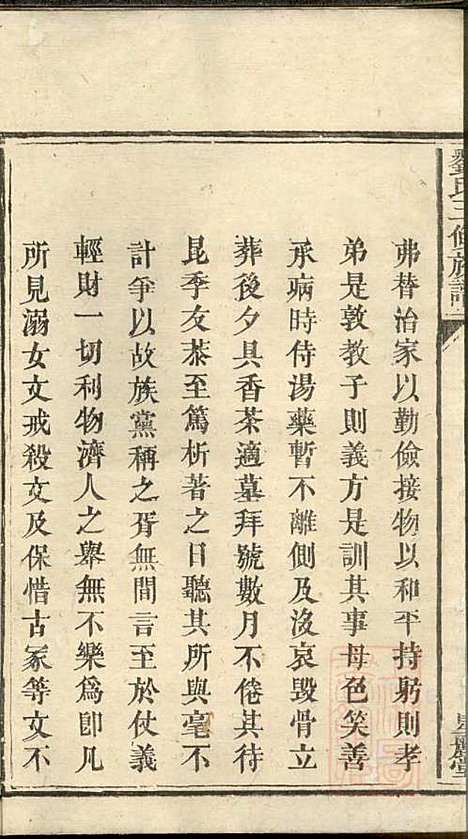 弗替治家以勤儉接物以和平持躬則孝
弟是敦教子則義方是訓其事母色笑善
承病時侍湯藥暫不離側及沒哀毀骨立
葬後夕具香茶適墓拜號數月不倦其待
昆季友恭至篤析著之日聽其所與毫不
計爭以故族黨稱之胥無間言至於仗義
輕財一切利物濟人之舉無不樂爲即凡
所見溺女文戒殺文及保惜古冢等文不
劉氏三修族譜